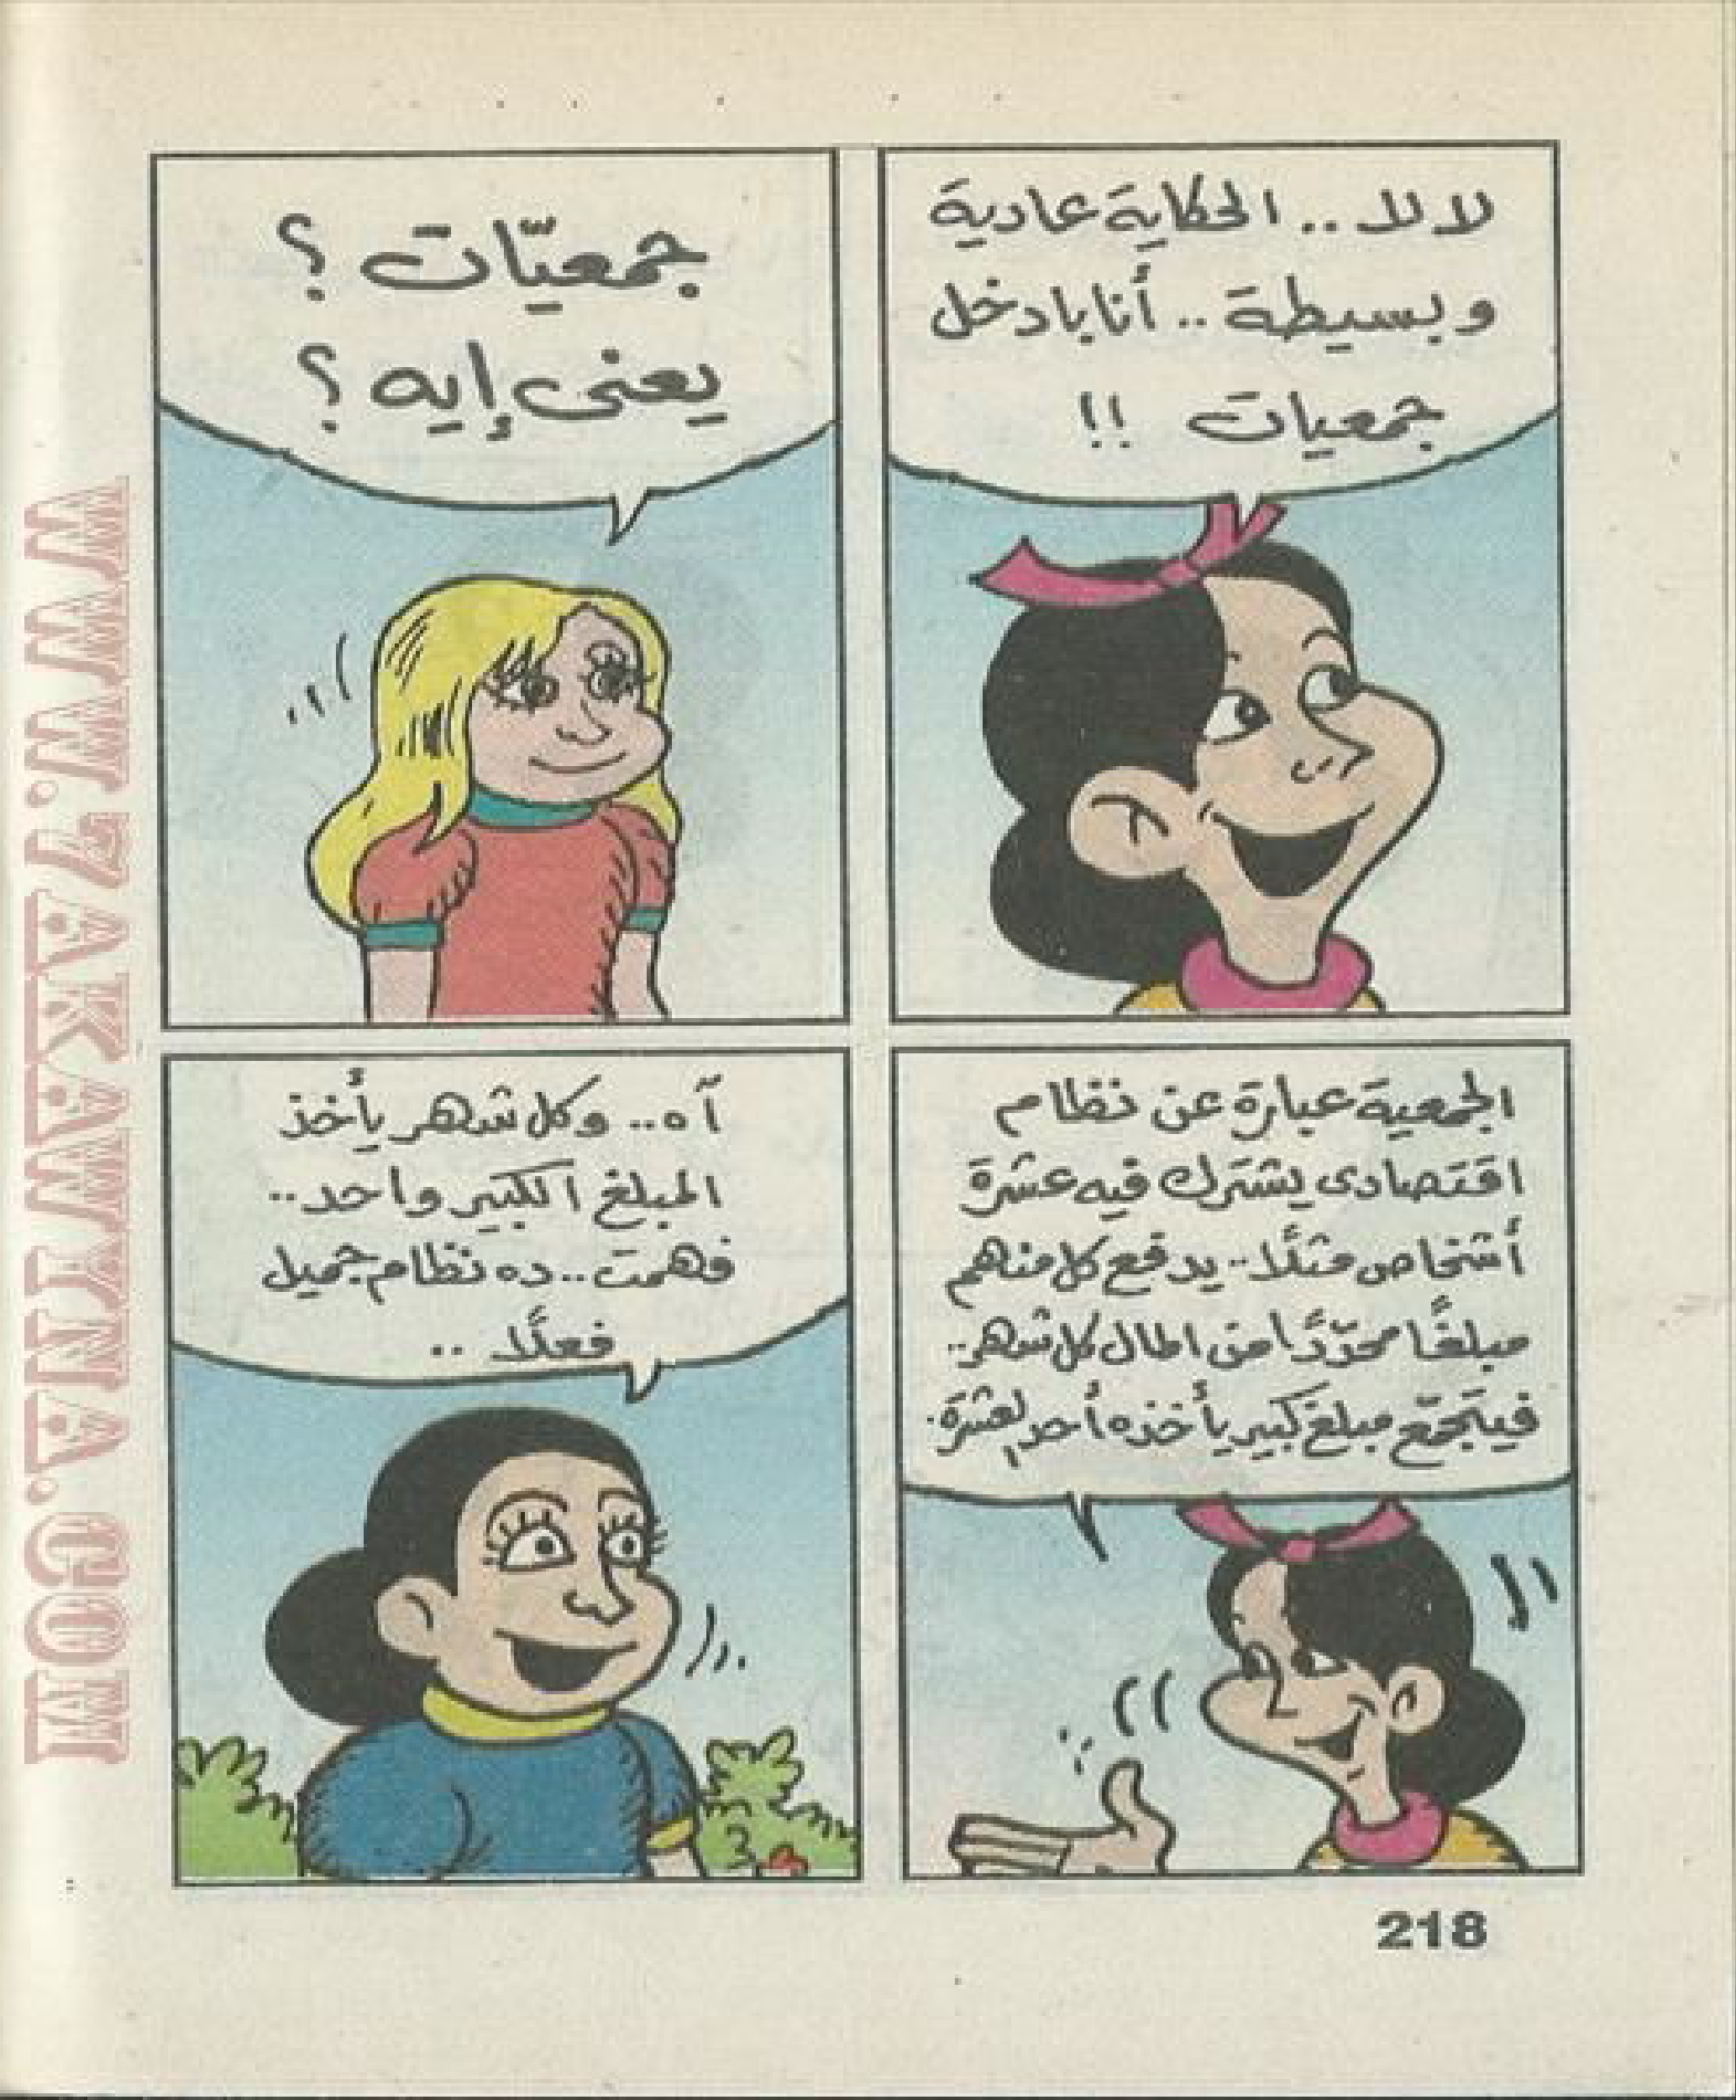 لا للا .. الحكاية عادية
وبسيطة .. أنا بادخل
جمعيات !!
جمعيّات ؟
يعنى إيه ؟
الجمعية عبارة عن نظام
اقتصادى يشترك فيه عشرة
أشخاص مثلًا .. يدفع كل منهم
مبلغًا محدّدًا من المال كل شهر ..
فيتجمّع مبلغ كبير يأخذه أحد العشرة.
آه .. وكل شهر يأخذ
المبلغ الكبير واحد ..
فهمت .. ده نظام جميل
فعلًا ..
218
WWW.7AKAWINA.COM